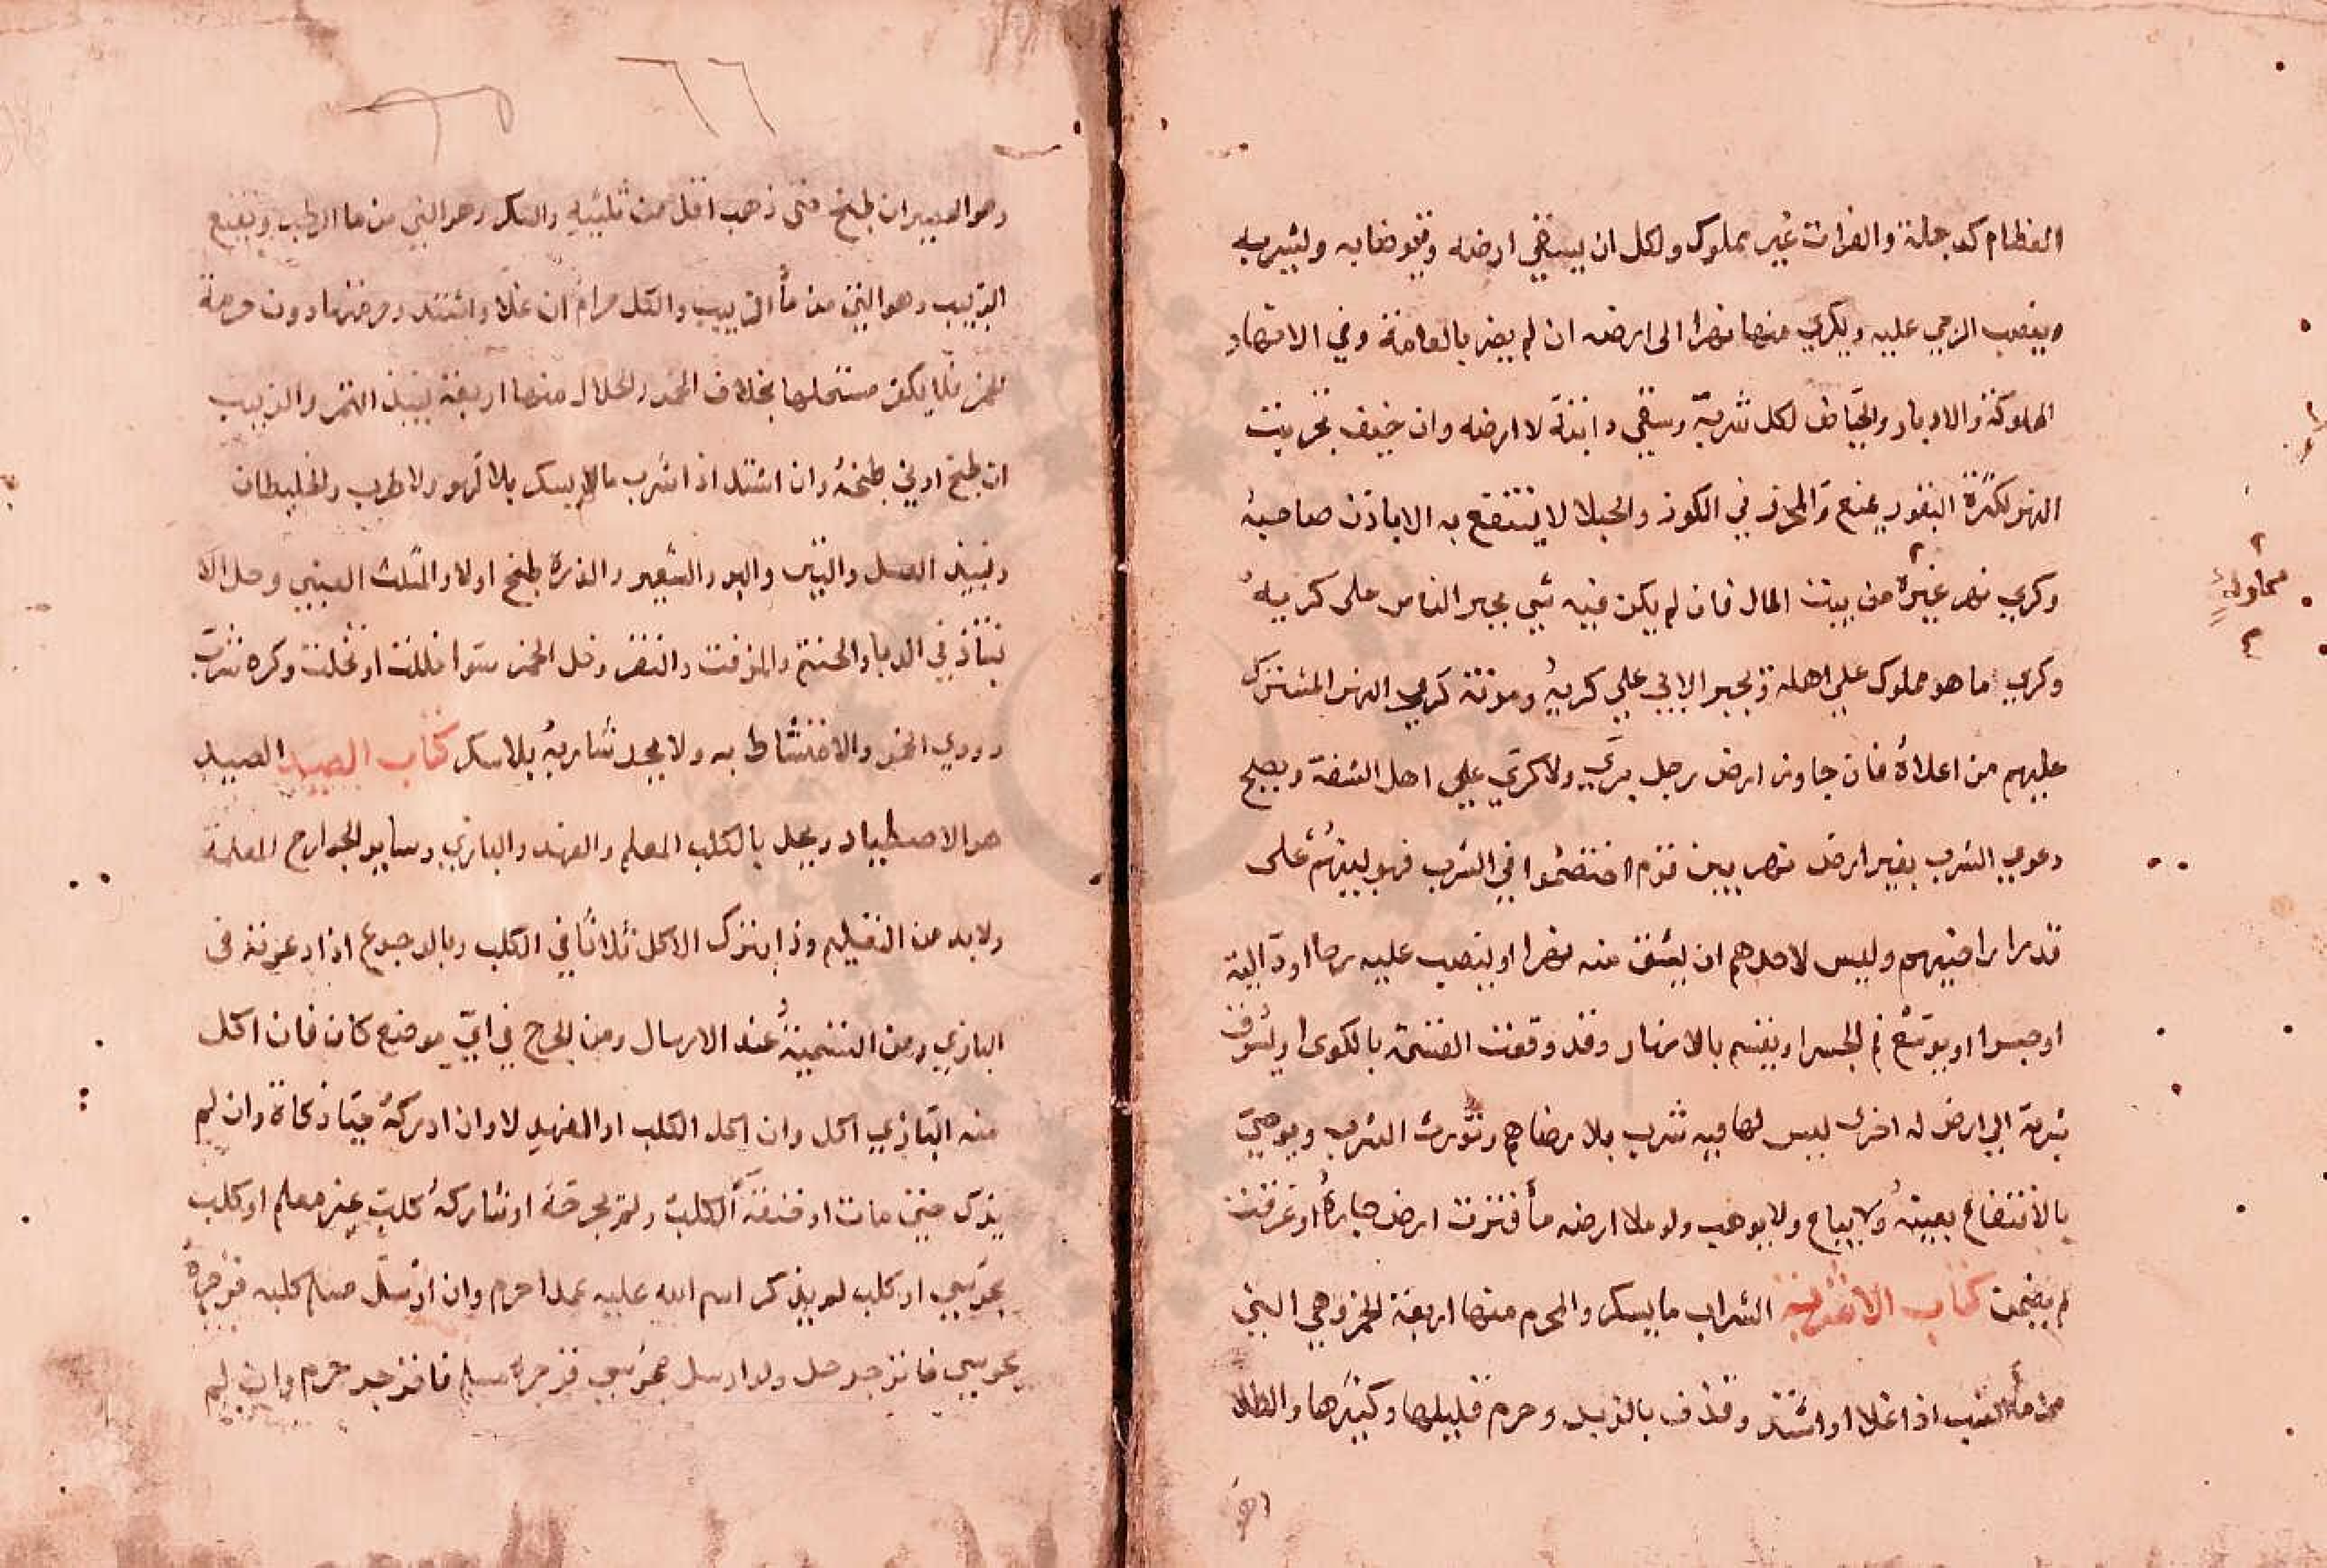 العظام كدجلة والفرات غير مملوك ولكل ان يسقي ارضه ويتوضا به ويشربه
وينصب الرحي عليه ويكري منها نهرا الى ارضه ان لم يضر بالعامة وفي الانهار
المملوكة والابار والحياض لكل شربه وسقي دابته لا ارضه وان خيف تخريب
النهر لكثرة البقور يمنع والمحرز في الكوز والحب لا ينتفع به الا باذن صاحبه
وكري نهر غير من بيت المال فان لم يكن فيه شي يجبر الناس على كريه
مملوك
وكري ما هو مملوك على اهله ويجبر الابي على كريه ومونة كري النهر المشترك
عليهم من اعلاه فان جاوز ارض رجل بري ولا كري على اهل الشفة ويصح
دعوي الشرب بغير ارض نهر بين قوم اختصموا في الشرب فهو بينهم على
قدر اراضيهم وليس لاحدهم ان يشق منه نهرا او ينصب عليه رحا او دالية
او جسرا او يوسع فم الجسر او يقسم بالايام وقد وقعت القسمة بالكوى او يسوق
شربه الى ارض له اخرى ليس لها فيه شرب بلا رضاهم وتورث الشرب ويوصي
بالانتفاع بعينه ولا يباع ولا يوهب ولو ملا ارضه مأ فنزت ارض جاره او غرقت
لم يضمن كتاب الاشربة الشراب ما يسكر والمحرم منها اربعة الخمر وهي الني
من مأ العنب اذا غلا او اشتد وقذف بالزبد وحرم قليلها وكثيرها والطلا
وهو
٦٦
وهو العصير ان طبخ حتى ذهب اقل من ثلثيه والسكر وهو الني من ما الرطب ونقيع
الزبيب وهو الني من مأ الزبيب والكل حرام ان غلا واشتد وحرمتها دون حرمة
الخمر فلا يكفر مستحلها بخلاف الخمر والحلال منها اربعة نبيذ التمر والزبيب
ان طبخ ادني طبخة وان اشتد اذا شرب ما لا يسكر بلا لهو ولا طرب والخليطان
ونبيذ العسل والتين والبر والشعير والذرة طبخ اولا والمثلث العنبي وحل الا
نتباذ في الدبا والحنتم والمزفت والنقير وخل الخمر سوا خللت او تخللت وكره شرب
دردي الخمر والامتشاط به ولا يحد شاربه بلا سكر كتاب الصيد الصيد
هو الاصطياد ويحل بالكلب المعلم والفهد والبازي وساير الجوارح المعلمة
ولابد من التعليم وذا بترك الاكل ثلاثا في الكلب وبالرجوع اذا دعوته في
البازي ومن التسمية عند الارسال ومن الجرح في اي موضع كان فان اكل
منه البازي اكل وان اكل الكلب او الفهد لا وان ادركه حيا ذكاه وان لم
يذك حتى مات او خنقه الكلب ولم يجرحه او شاركه كلب غير معلم او كلب
مجوسي او كلب لم يذكر اسم الله عليه عمدا حرم وان ارسل مسلم كلبه فزجره
مجوسي فانزجر حل ولو ارسل مجوسي فزجره مسلم فانزجر حرم وان لم